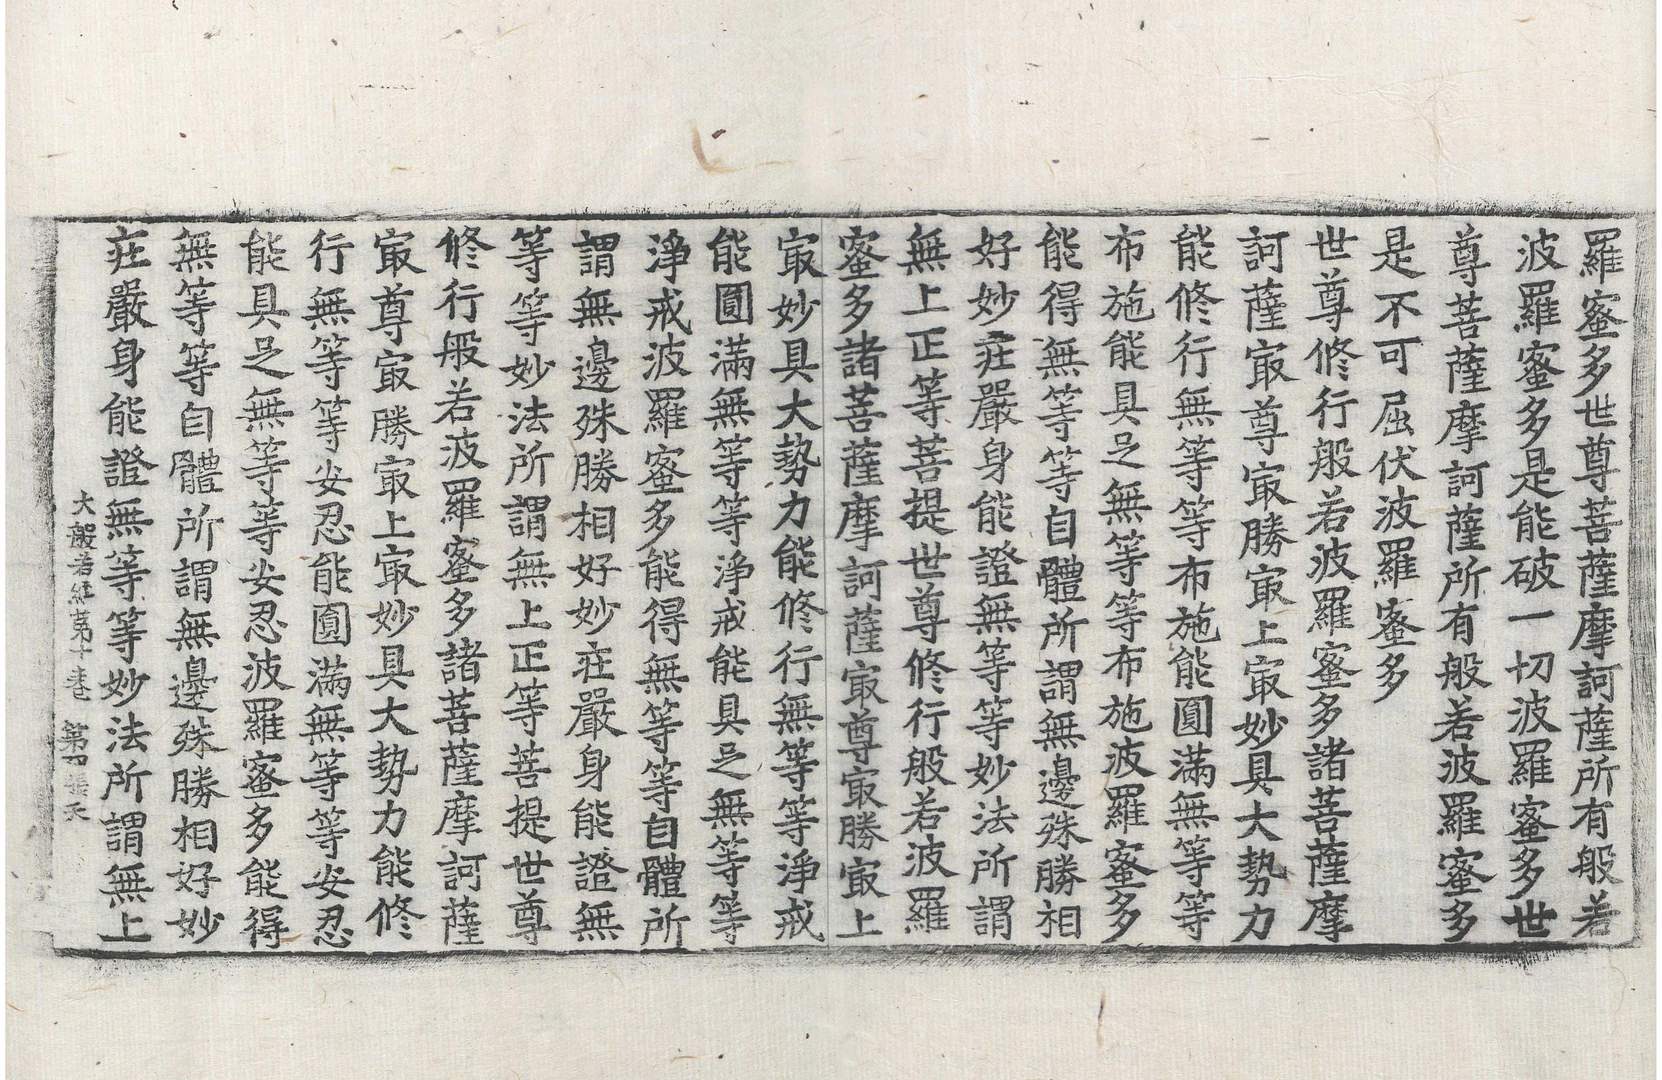 羅蜜多世尊菩薩摩訶薩所有般若
波羅蜜多是能破一切波羅蜜多世
尊菩薩摩訶薩所有般若波羅蜜多
是不可屈伏波羅蜜多
世尊修行般若波羅蜜多諸菩薩摩
訶薩㝡尊㝡勝㝡上㝡妙具大勢力
能修行無等等布施能圓滿無等等
布施能具足無等等布施波羅蜜多
能得無等等自體所謂無邊殊勝相
好妙莊嚴身能證無等等妙法所謂
無上正等菩提世尊修行般若波羅
蜜多諸菩薩摩訶薩㝡尊㝡勝㝡上
㝡妙具大勢力能修行無等等淨戒
能圓滿無等等淨戒能具足無等等
淨戒波羅蜜多能得無等等自體所
謂無邊殊勝相好妙莊嚴身能證無
等等妙法所謂無上正等菩提世尊
修行般若波羅蜜多諸菩薩摩訶薩
㝡尊㝡勝㝡上㝡妙具大勢力能修
行無等等安忍能圓滿無等等安忍
能具足無等等安忍波羅蜜多能得
無等等自體所謂無邊殊勝相好妙
莊嚴身能證無等等妙法所謂無上
大般若經第十卷 第 張 天